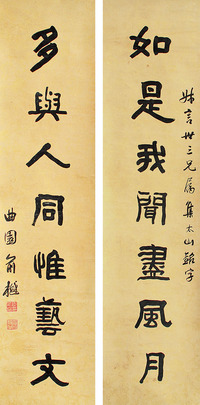 言世三兄属集太山銘字
如是我聞盡風月
多與人同惟藝文
曲園俞樾